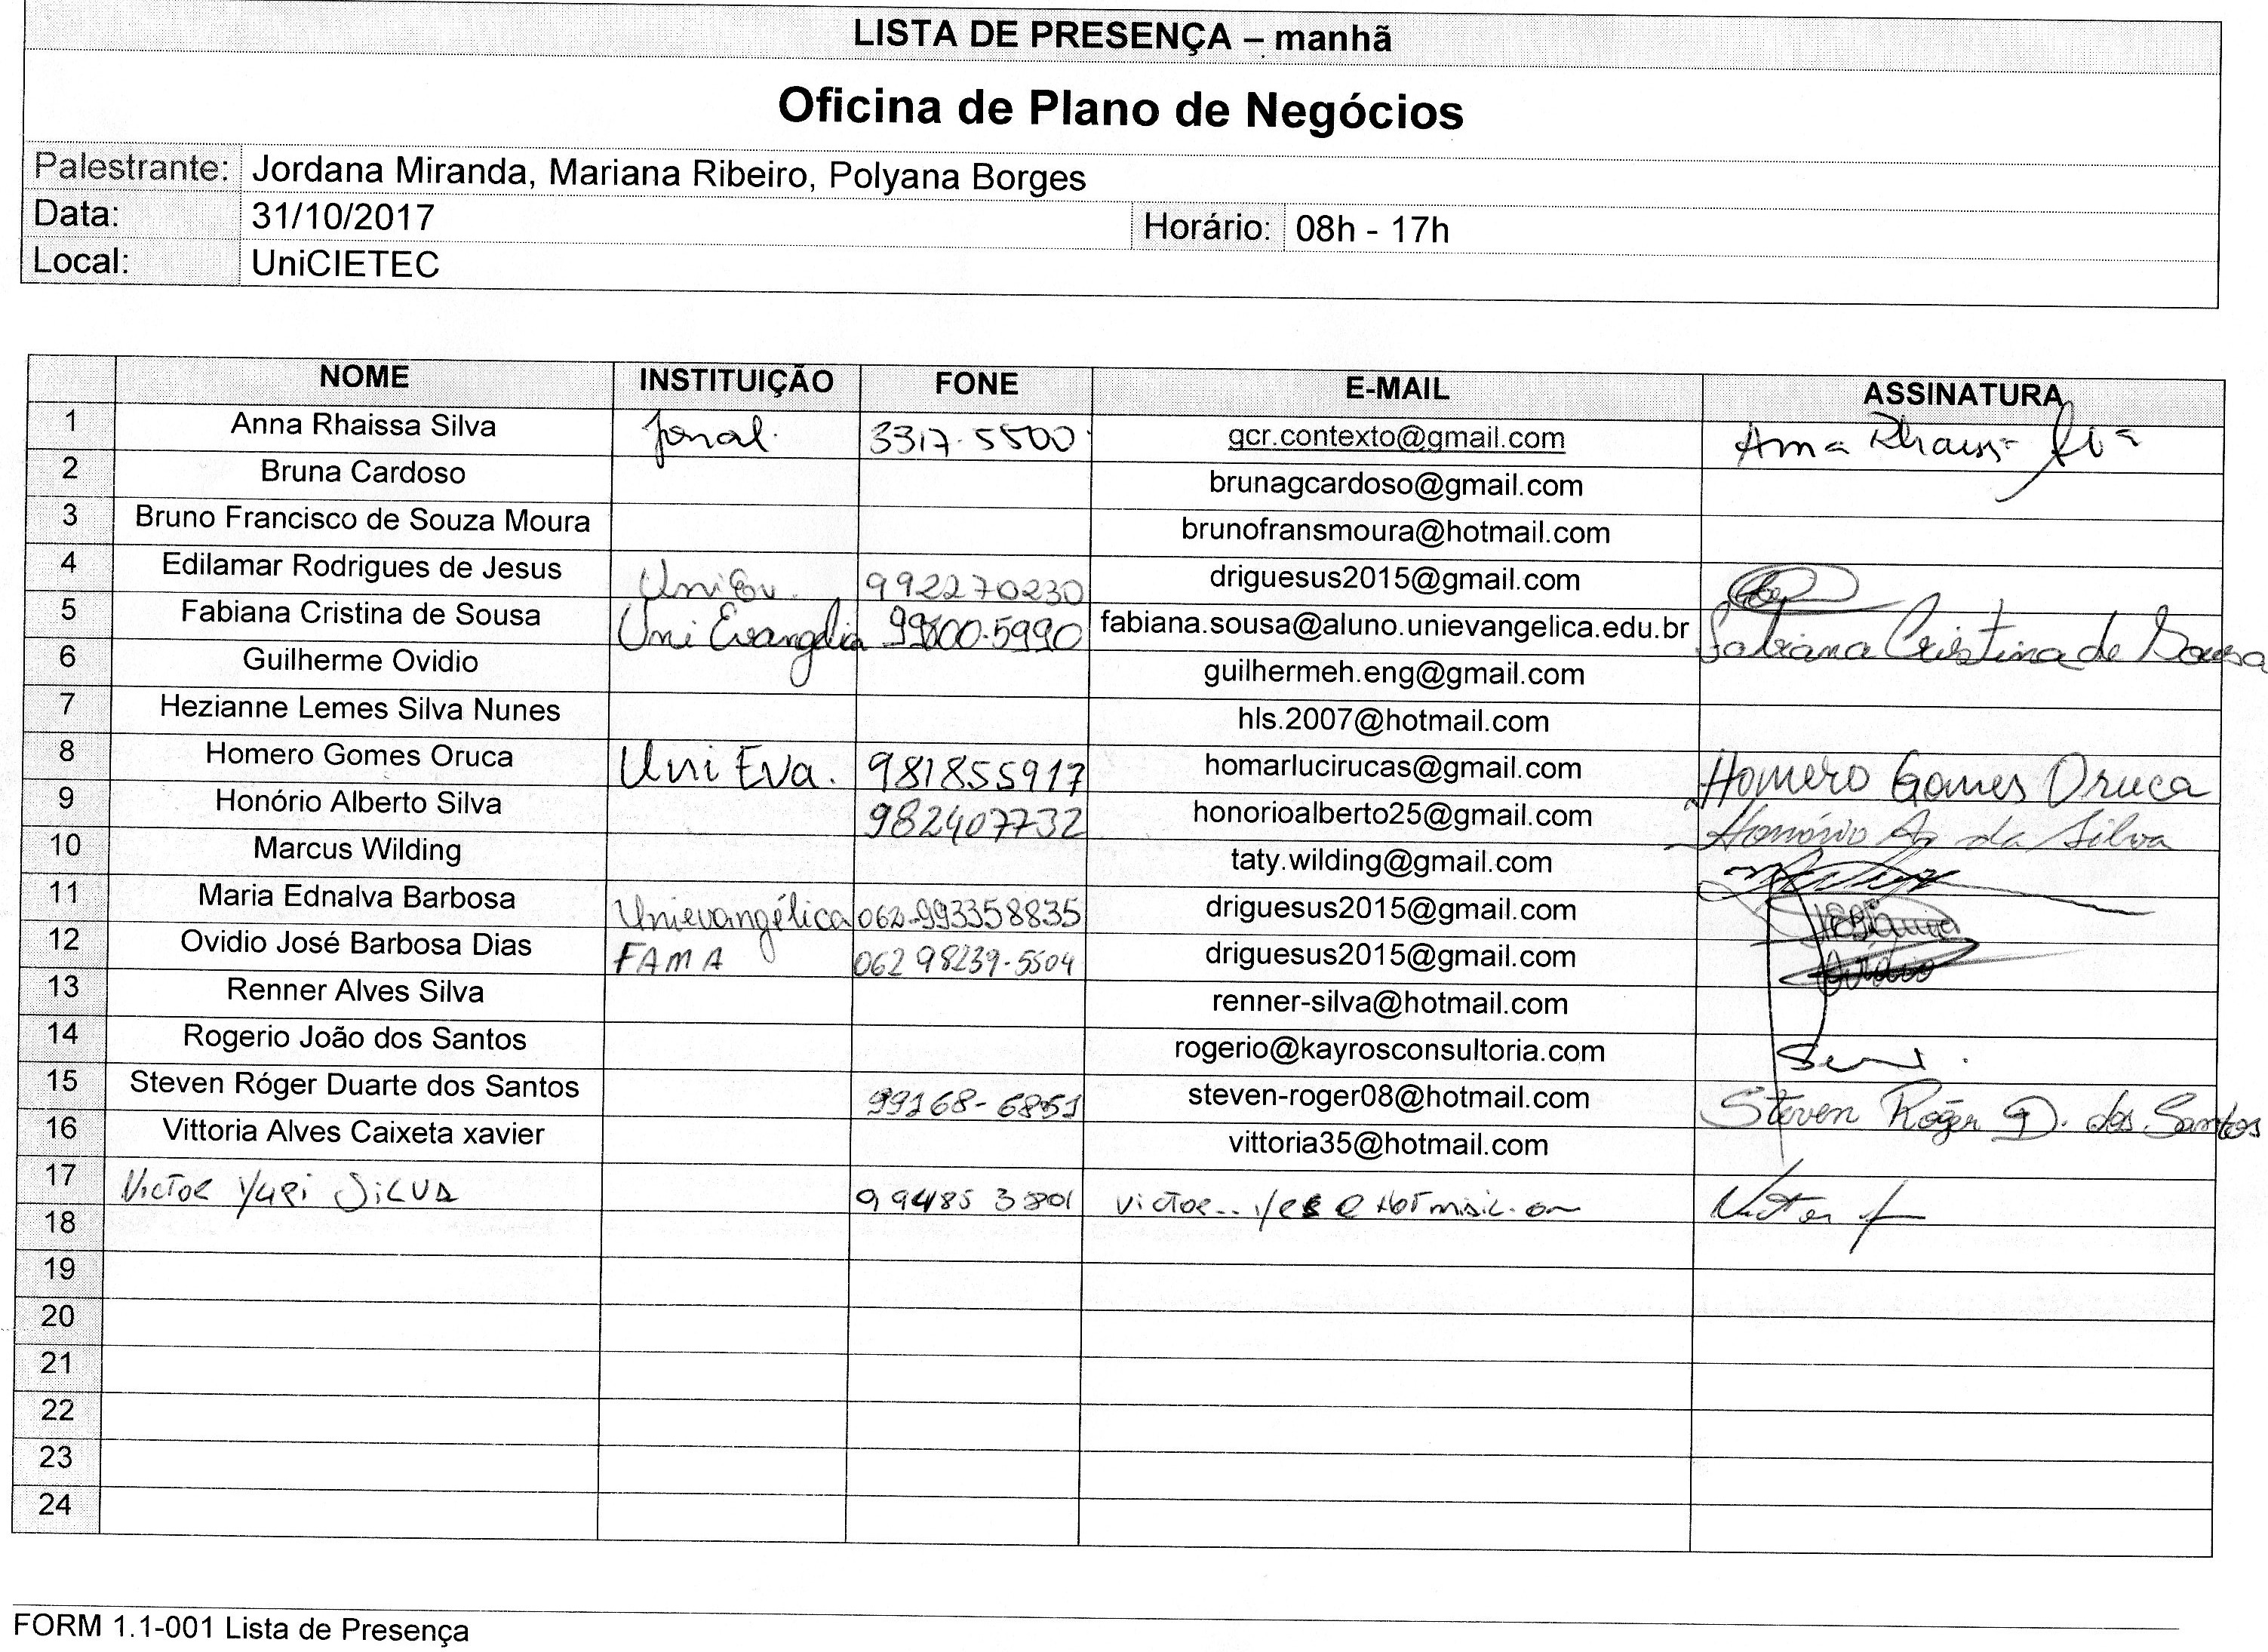 LISTA DE PRESENÇA – manhã
Oficina de Plano de Negócios
Palestrante: Jordana Miranda, Mariana Ribeiro, Polyana Borges
Data: 31/10/2017 Horário: 08h - 17h
Local: UniCIETEC
NOME INSTITUIÇÃO FONE E-MAIL ASSINATURA
1 Anna Rhaissa Silva 3317-5500 gcr.contexto@gmail.com
2 Bruna Cardoso brunagcardoso@gmail.com
3 Bruno Francisco de Souza Moura brunofransmoura@hotmail.com
4 Edilamar Rodrigues de Jesus UniEv. 992270230 driguesus2015@gmail.com
5 Fabiana Cristina de Sousa 99800-5990 fabiana.sousa@aluno.unievangelica.edu.br Fabiana Cristina de Sousa
6 Guilherme Ovidio guilhermeh.eng@gmail.com
7 Hezianne Lemes Silva Nunes hls.2007@hotmail.com
8 Homero Gomes Oruca Uni Eva. 981855917 homarlucirucas@gmail.com Homero Gomes Oruca
9 Honório Alberto Silva 982407732 honorioalberto25@gmail.com Honório da Silva
10 Marcus Wilding taty.wilding@gmail.com
11 Maria Ednalva Barbosa Unievangélica 062-993358835 driguesus2015@gmail.com
12 Ovidio José Barbosa Dias FAMA 062 98239-5504 driguesus2015@gmail.com
13 Renner Alves Silva renner-silva@hotmail.com
14 Rogerio João dos Santos rogerio@kayrosconsultoria.com
15 Steven Róger Duarte dos Santos 99168-6851 steven-roger08@hotmail.com Steven Róger D. dos Santos
16 Vittoria Alves Caixeta xavier vittoria35@hotmail.com
17 VICTOR YURI SILVA 99485 3801
18
19
20
21
22
23
24
FORM 1.1-001 Lista de Presença